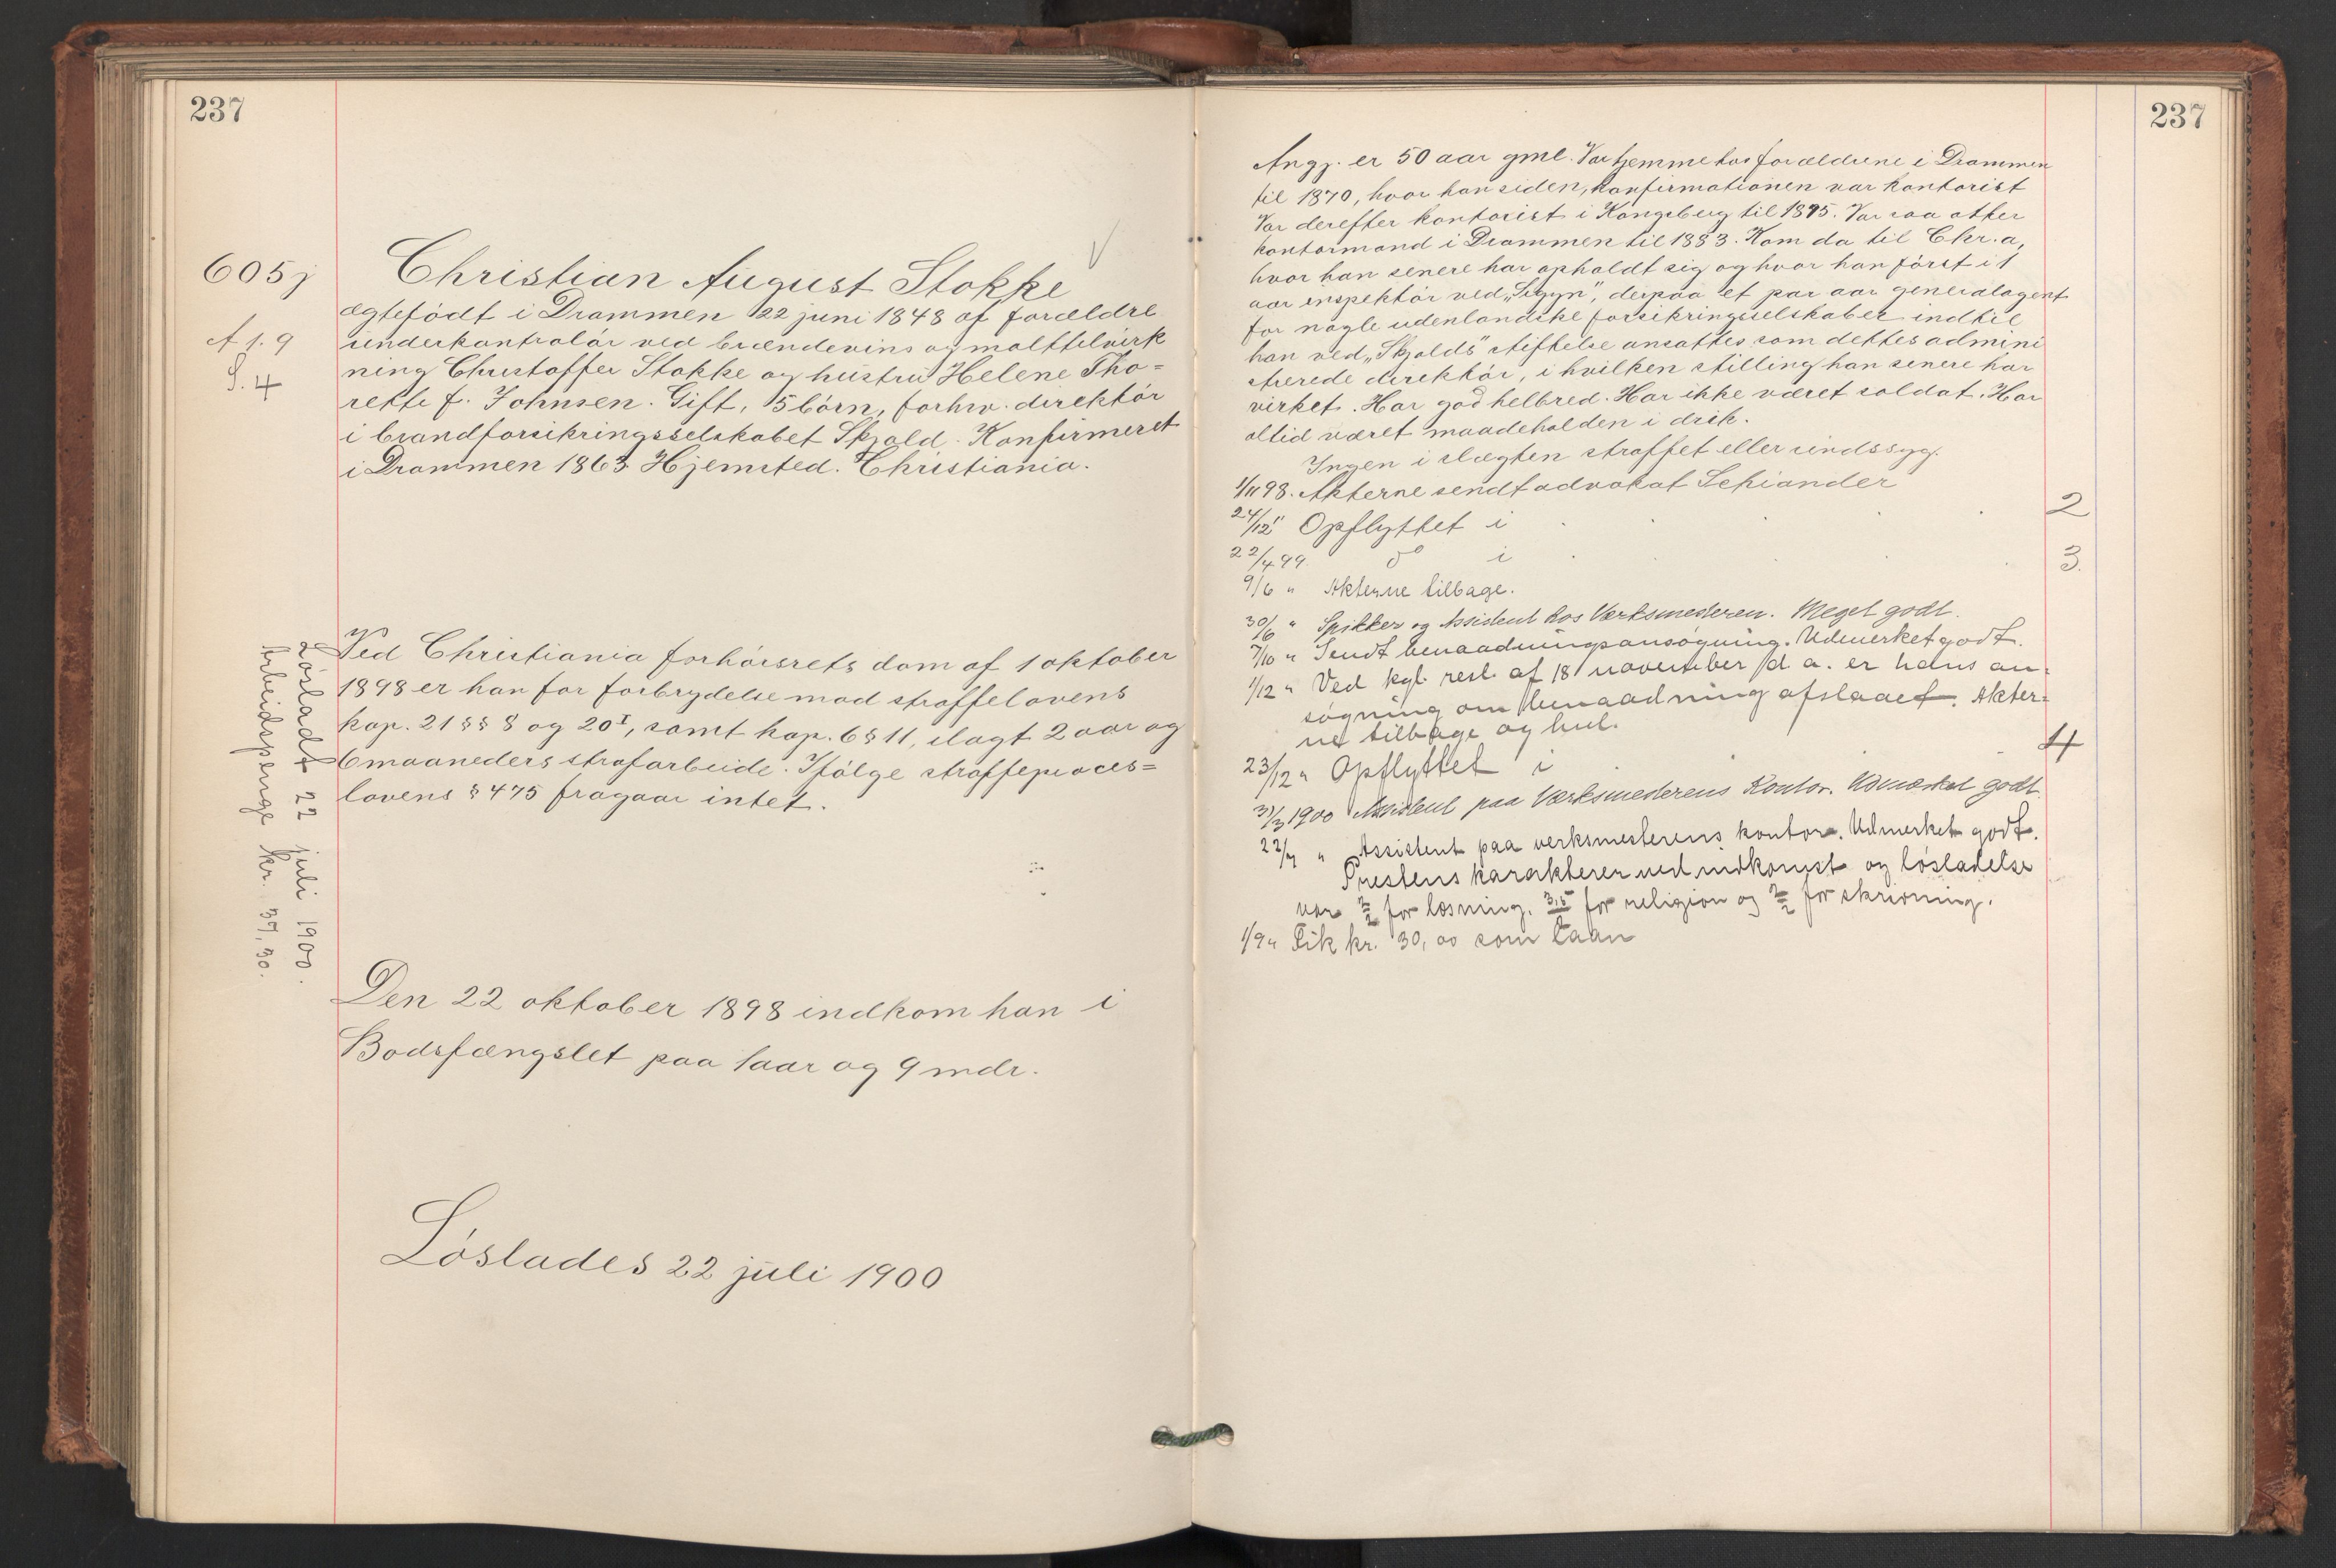 237
605j
Christian August Stokke
ægtefödt i Drammen 22 juni 1848 af forældre
A 1. 9
underkontrolör ved brændevins og malttilvirk
S. 4
ning Christoffer Stokke og hustru Helene Tho=
rette f. Johnsen. Gift, 5 börn, forhv. direktör
i brandforsikringsselskabet Skjold. Konfirmeret
i Drammen 1863 Hjemsted. Christiania.
Ved Christiania forhörsrets dom af 1 oktober
1898 er han for forbrydelse mod straffelovens
kap. 21 §§ 8 og 20 I, samt kap. 6 § 11, ilagt 2 aar og
6 maaneders strafarbeide. Ifölge straffeproces=
lovens § 475 fragaar intet.
Löslades 22 juli 1900.
Arbeidspenge kr. 37,30.
Den 22 oktober 1898 indkom han i
Bodsfængslet paa 1 aar og 9 mdr.
Löslades 22 juli 1900
237
Angj. er 50 aar gml. Var hjemme hos forældrene i Drammen
til 1870, hvor han siden konfirmationen var kontorist
Var derefter kontorist i Kongsberg til 1875. Var saa atter
kontormand i Drammen til 1883. Kom da til Chr.a,
hvor han senere har opholdt sig og hvor han först i 1
aar inspektör ved "Sigyn", derpaa et par aar generalagent
for nogle udenlandske forsikringsselskaber indtil
han ved "Skjolds" stiftelse ansattes som dettes admini
strerede direktör, i hvilken stilling han senere har
virket. Har god helbred. Har ikke været soldat. Har
altid været maadeholden i drik.
Ingen i slægten straffet eller sindssyg.
1/11 98. Akterne sendt advokat Schiander
24/12 " Opflyttet i 2
22/4 99 do i 3.
9/6 " Akterne tilbage.
30/6 " Spikker og Assistent hos Værksmesteren. Meget godt.
7/10 " Sendt benaadningsansögning. Udmerket godt.
1/12 " Ved kgl. resl. af 18 november d. a. er hans an-
sögning om benaadning afslaaet. Akter-
ne tilbage og hul.
23/12 " Opflyttet i 4
31/3 1900 Assistent paa Værksmesterens Kontor. Udmærket godt.
22/7 " Assistent paa verksmesterens kontor. Udmerket godt.
Prestens karakterer ved indkomst og lösladelse
var 2/2 for læsning, 3,5/2 for religion og 2/2 for skrivning.
1/9 " Fik kr. 30,00 som laan